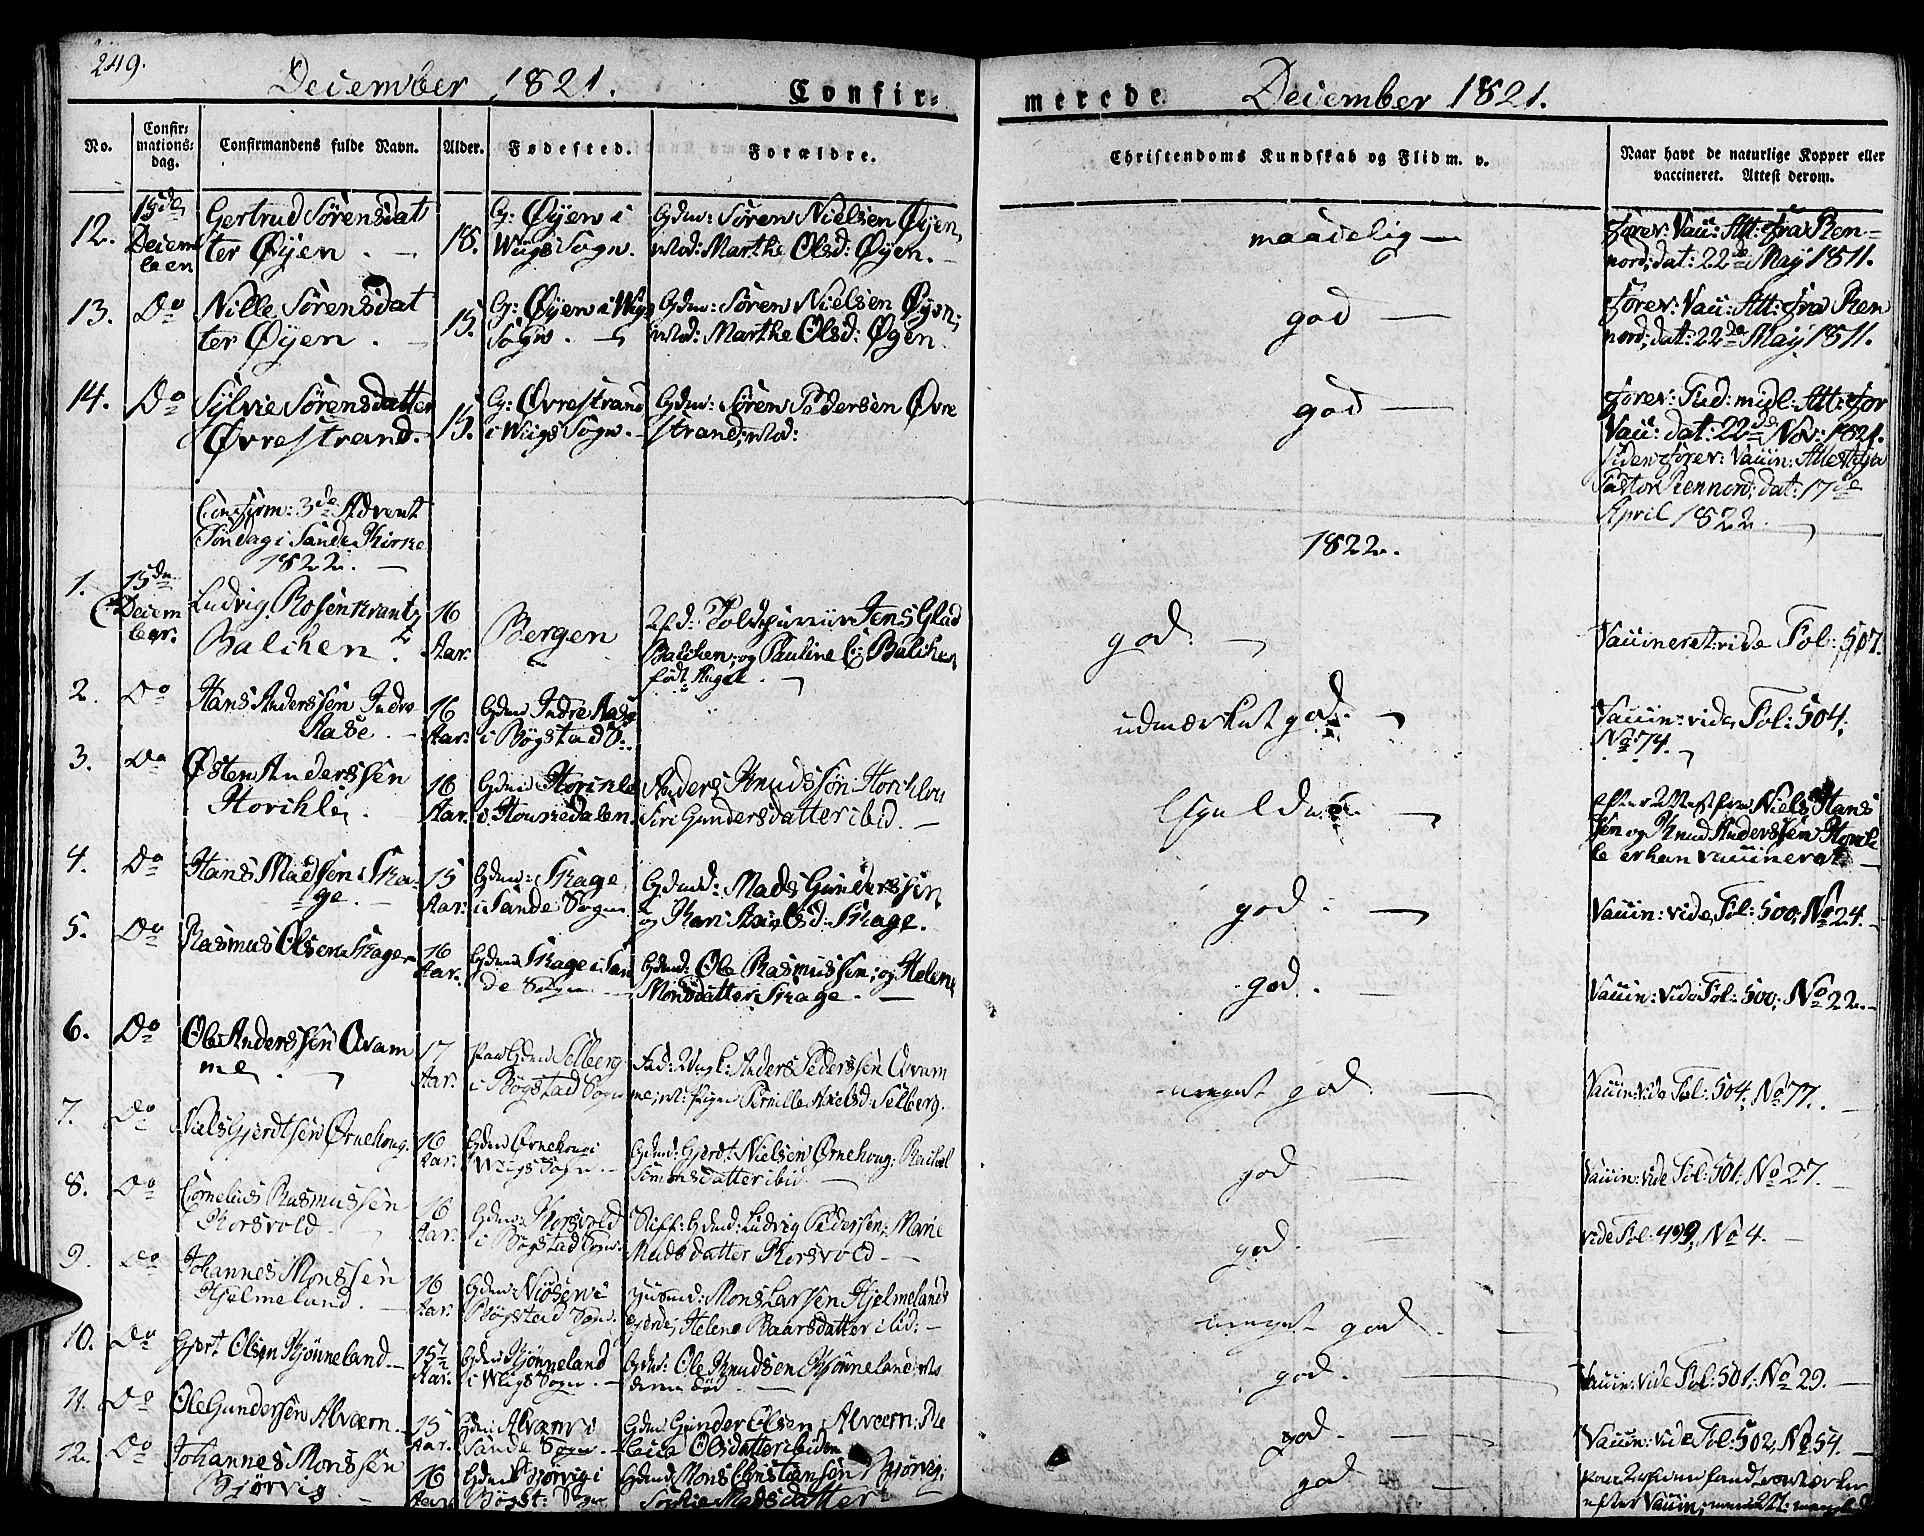 249.
December 1821. Confir-
merede. December 1821.
No.
Confir-
mations-
dag.
Confirmandens fulde Navn.
Alder.
Fødested.
Forældre.
Christendoms Kundskab og Flid m. v.
Naar havt de naturlige Kopper eller
vaccineret. Attest derom.
12.
15de
Decem
beer
Gertrud Sörensdat
ter Øyen. —
18.
G: Øyen i
Wiigs Sogn.
Gdm: Sören Nielsen Øyen,
Mod: Marthe Olsd: Øyen. —
maadelig —
forev: Vacc: Att: fra Ren-
nord; dat: 22de May 1811.
13.
Do
Nille Sörensdat
ter Øyen. —
15.
G: Øyen i Wigs
Sogn. —
Gdm: Sören Nielsen Øyen;
Mod: Marthe Olsd: Øyen
god —
forev: Vacc: Att: fra Ren
nord; dat: 22de May 1811.
14.
Do
Sylvie Sörensdatter
Øvrestrand. —
15.
G: Øvrestrand
i Wiigs Sogn. —
Gdm: Sören Pedersen Øvre
strand; Mod:
god —
forev: Tid: midl: Att: for
Vacc: dat: 22de Nov: 1821.
siden forev: Vaccin: Attest fra
Pastor Rennord; dat: 17de
April 1822.
Confirm: 3de Advent
Söndag i Sande Kirke
1822. —
1822.
1.
15de
Decem
ber.
Ludvig Rosenkrantz
Balchen.
16
Aar.
Bergen
Jens Glad
Balchen; og Pauline C: Balchen
födt Angel. —
god. —
Vaccineret vide Fol: 507.
2.
Do
Hans Anderssen Indre
Aase. —
16
Aar.
Gdm Indre Aase
i Bögstad S:.
udmærket god. —
Vaccin: vide Fol: 504.
No 74.
3.
Do
Østen Anderssen
Horchlei.
16
Aar.
Gdm
i Houvedalen.
Anders Knudssön
Siri Gundersdatter ibid. —
—
Efter Attest fra Niels Hans
sen og Knud Anderssen
er han vaccineret —
4.
Do
Hans Madssen Ska-
ge. —
15
Aar.
Gdm: Skage
i Sande Sogn
Gdmd: Mads Gunderssen
og Kari Olsd: Skage.
god. —
Vaccin: vide Fol: 500, No 24. —
5.
Do
Rasmus Olsen Skage
16
Aar.
Gdm Skage i San
de Sogn —
Gdmd: Ole Rasmussen; og Helene
Monsdatter Skage. —
god. —
Vaccin: vide Fol: 500, No 22. —
6.
Do
Ole Anderssen Qvam
me.
17
Aar.
Selberg
i Bögstad Sogn
Fad: Ungk: Anders Pederssen Qvam
me; M: Pigen Pernille Axelsd: Selberg.
meget god. —
Vaccin: vide Fol: 504, No 77. —
7.
Do
Niels Gjerdtsen Örnehoug.
16
Aar.
Gdm Örnehoug i
Wiigs Sogn. —
Gdmd: Gjerdt Nielsen Örnehoug; Rachel
Simonsdatter ibid. —
god —
Vaccin: vide Fol: 501, No 27. —
8.
Do
Cornelius Rasmussen
Korsvold —
16
Aar.
Gdm: Korsvold
i Bögstad Sogn.
Stiff: Gdmd: Ludvig Pedersen; Marie
Madsdatter Korsvold —
god. —
vide Fol: 499, No 4. —
9.
Do
Johannes Monssen
Hjelmeland. —
16
Aar.
Gdm:
Bögstad Sogn.
Huusmd: Mons Larsen Hjelmelands
Helene Baarsdatter ibid: —
meget god. —
10.
Do
Gjert Olsen Kjönneland. —
15½
Aar.
Gdm Kjönneland
i Wiigs Sogn. —
Gdm: Ole Knudsen Kjönneland; Mo
deren död. —
god. —
Vaccin: vide Fol: 501, No 29. —
11.
Do
Ole Gundersen Alværn. —
15
Aar.
Gdm: Alværn i
Sande Sogn. —
Gdm Gunder Olsen Alværn: Re
becca Olsdatter ibidem
god. —
Vaccin: vide Fol: 502, No 54. —
12.
Do
Johannes Monssen
Björvig —
16
Aar.
Gdm Björvig i
Bögst: Sogn
Gdmd Mons Christiansön Björvig;
Sophie Madsdatter
god —
efter Vaccin;